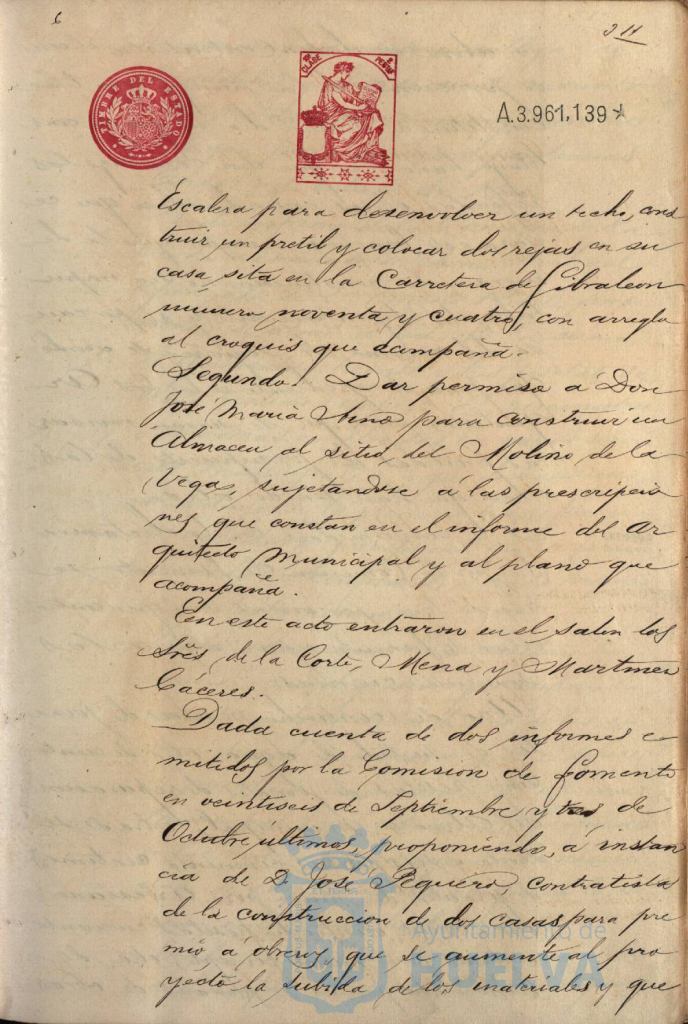 6
311
TIMBRE DEL ESTADO
CLASE
PESETAS
A.3.961,139*
Escalera para desenvolver un techo, cons
truir un pretil y colocar dos rejas en su
casa sita en la Carretera de Gibraleon
numero noventa y cuatro, con arreglo
al croquis que acompaña.
Segundo. Dar permiso á Don
José Maria Niño para construir un
Almacen al sitio del Molino de la
Vega, sujetandose á las prescripcio
nes que constan en el informe del Ar
quitecto Municipal y al plano que
acompaña.
En este acto entraron en el salon los
Sres de la Corte, Mena y Martinez
Cáceres.
Dada cuenta de dos informes e
mitidos por la Comision de fomento
en veintiseis de Septiembre y tres de
Octubre últimos, proponiendo, á instan
cia de D. José Peguero, contratista
de la construccion de dos casas para pre
mio á obreros, que se aumente al pro
yecto la subida de los materiales y que
Ayuntamiento de
HUELVA